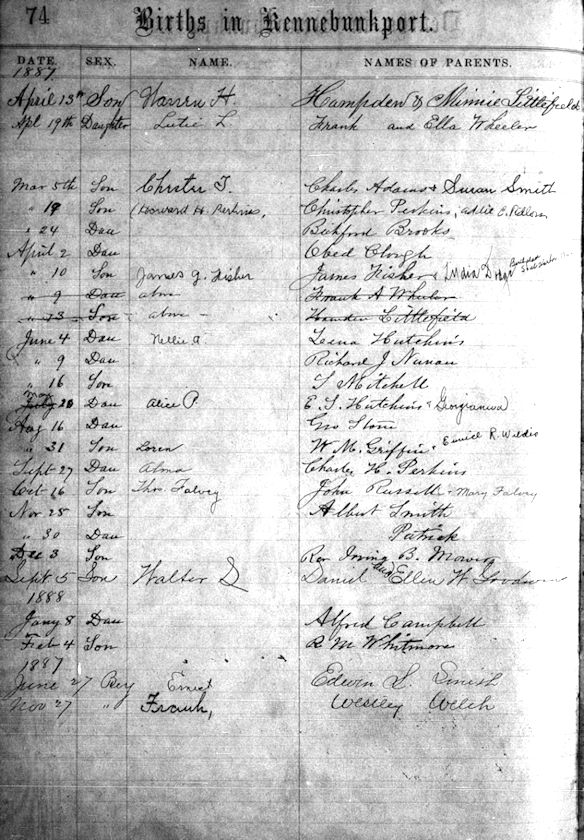 74
Births in Kennebunkport.
DATE. SEX. NAME. NAMES OF PARENTS.
1887
April 13th Son Warren H. Hampden & Minnie Littlefield
Apl 19th Daughter Lutie L. Frank and Ella Wheeler
Mar 5th Son Chester T. Charles Adams & Susan Smith
" 19 Son (Howard H. Perkins, Christopher Perkins, Addie C.
" 24 Dau Bickford Brooks
April 2 Dau Obed Clough
" 10 Son James G. Fisher James Fisher &
" 9 Dau above Frank A Wheeler
" 13 Son above Littlefield
June 4 Dau Nellie A Leena Hutchins
" 9 Dau Richard J Nunan
" 16 Son S Mitchell
May
July 20 Dau Alice P. E. S. Hutchins & Georgianna
Aug 16 Dau Geo Stone
" 31 Son Loren W. M. Griffin & Eunice R. Wildis
Sept 27 Dau Alma Charles H. Perkins
Oct 16 Son Thos. Falvey John Russell & Mary Falvey
Nov 25 Son Albert Smith
" 30 Dau Patrick
Dec 3 Son Rev Irving B. Mower
Sept 5 Son Walter S Daniel and Ellen W Goodwin
1888
Jany 8 Dau Alfred Campbell
Feb 4 Son R M Whitmore
1887
June 27 Boy Ernest Edwin S. Smith
Nov 27 " Frank, Westley Welch